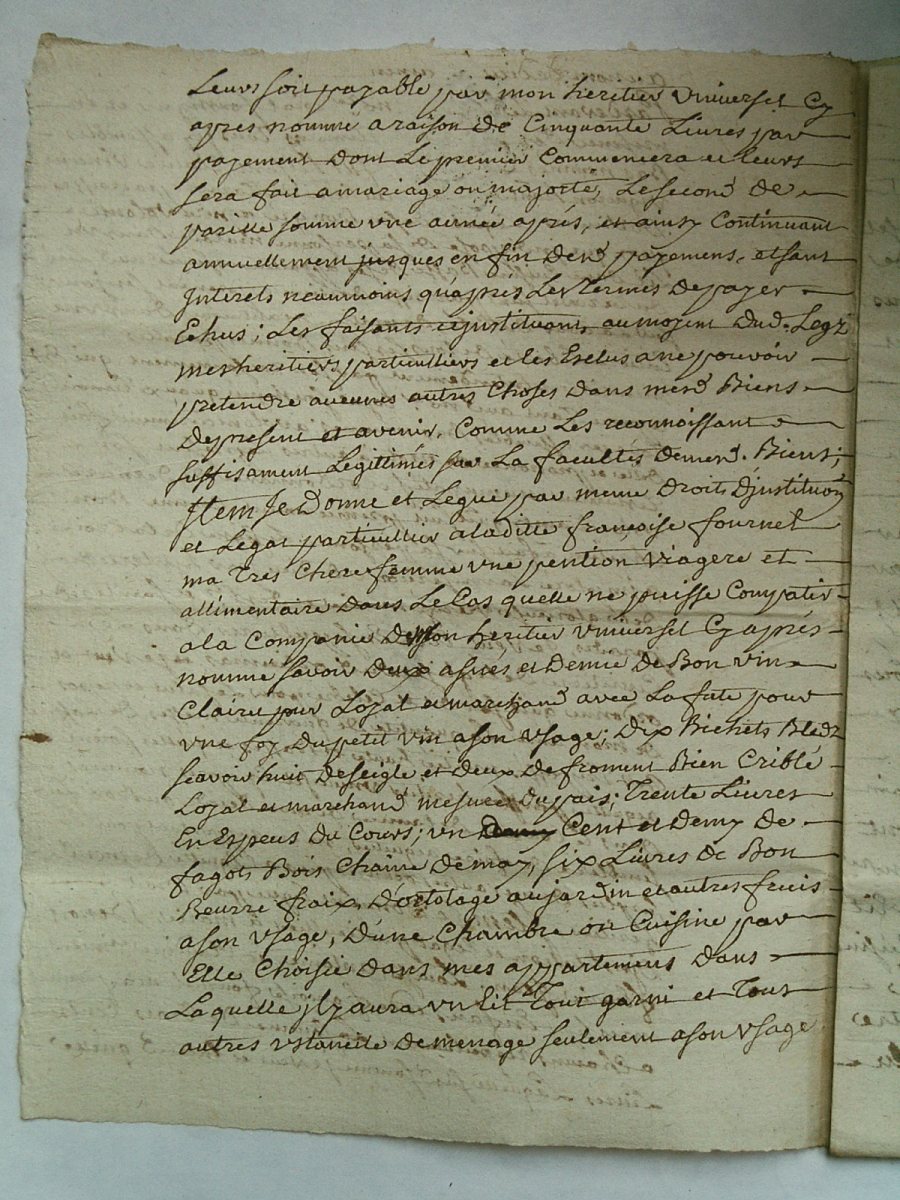 Leurs soit payable par mon heritier Universel Cy
apres nommé a raison de Cinquante Livres par
payement dont Le premier Commencera et leurs
sera fait a mariage ou majorté, Le second de
pareille somme une année aprés, et ainsy Continuant
annuellement jusques en fin ded payemens, et sans
Interets neaumoins qu'aprés Les Termes de payer
Echus; Les faisants et instituant, au mojent dud. Legz
mes heritiers particulliers et les Exclus a ne pouvoir
pretendre aucunes autres Choses dans mesd Biens
de present et avenir, Comme Les reconnoissant
suffisament Legittimés sur La facultés de mesd. Biens;
Item Je Donne et Legue par meme Droits d'jnstituon
et Legat particullier a laditte françoise fournel
ma Tres Chere femme une pention viagere et
allimentaire dans Le Cas quelle ne puisse Compatir
a la Companie de son heritier universel Cy aprés
nommé savoir deux asnés et demie de Bon vin
Claire pur Lojal et marchand avec La fute pour
une foy, du petit vin a son usage; Dix Bichets Bledz
scavoir huit de seigle et deux de froment Bien Criblé
Lojal et marchand mesure du païs; Trente Livres
En Espeus du Cours; un Demy Cent et Demy de
fagots Bois Chaine de may, six Livres de Bon
Beurre fraix, d'ortolage au jardin et autres fruis
a son usage, d'une Chambre ou Cuisine par
Elle Choisie dans mes appartemens dans
Laquelle jl y aura un Lit Tout garni et Tous
autres ustancile de menage seulement a son usage